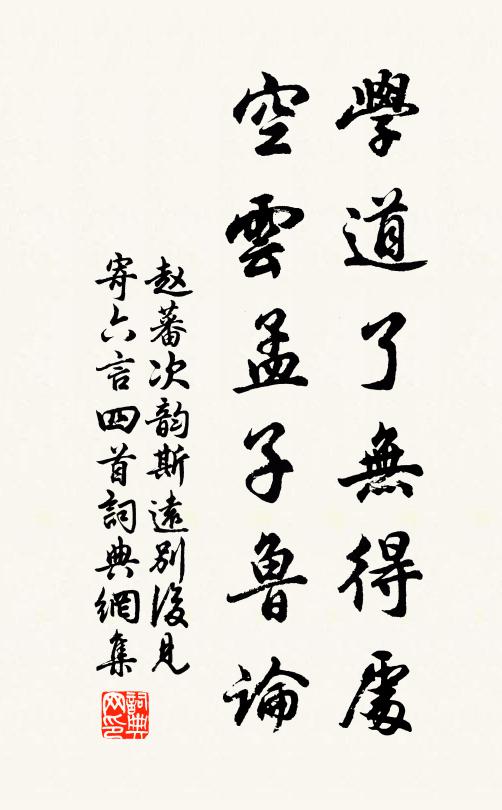 學道了無得處
空雲孟子魯論
赵蕃次韵斯遠别後見
寄六言四首詞典網集
詞典网印